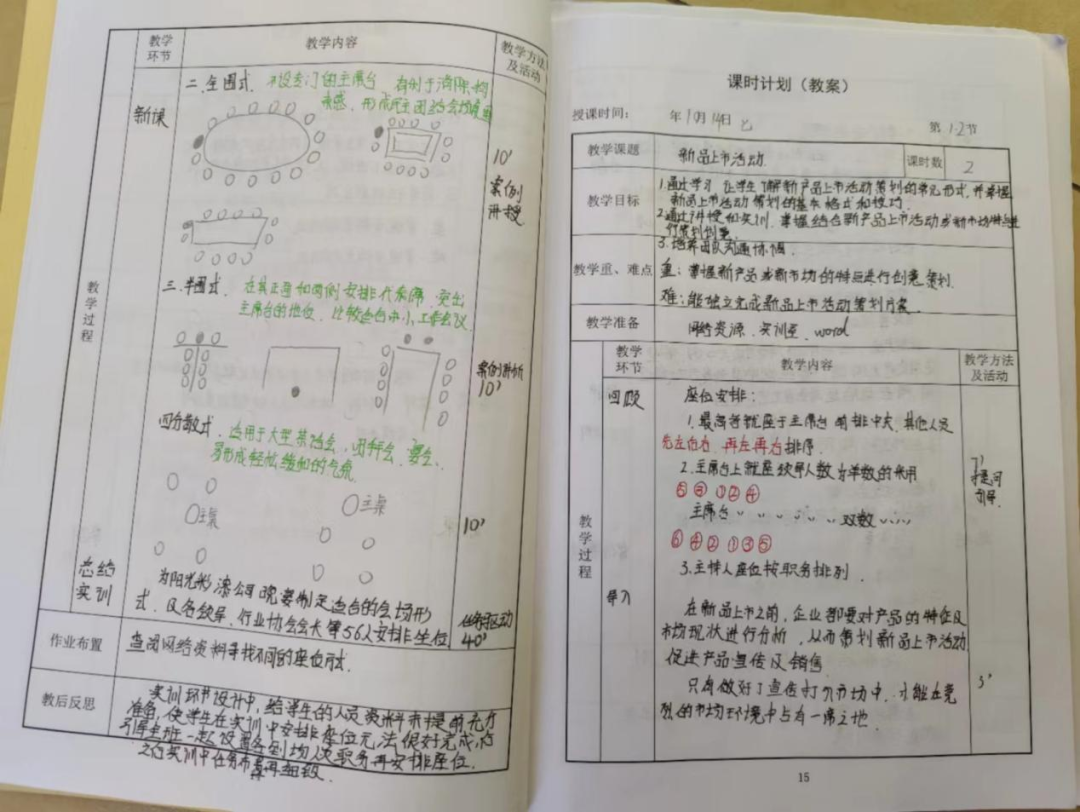 教学
环节
教学内容
教学方法
及活动
新课
二.全围式. 不设专门的主席台
形成民主团结会场
10'
案例
讲授
教
学
过
程
三.半围式. 在其正面和两侧安排代表席 突出
主席台的地位. 比较适合中小工作会议
案例
10'
四分散式. 适用于大型茶话会 团拜会
形成轻松的气氛
主桌
主桌
10'
总结
实训
为阳光彩漆公司晚宴制定适合的会场形
式.及各领导.行业协会会长等56人安排坐位
任务驱动
40'
作业布置
查阅网络资料寻找不同的座位
教后反思
实训环节设计中,给学生的人员资料
准备,使学生在实训中安排座位无法很好完成
职务再安排座位.
实训中任务布置再细致
课时计划(教案)
授课时间: 年10月14日 第1-2节
教学课题
新品上市活动
课时数
2
教学目标
1.通过学习 让学生了解新产品上市活动策划的常见形式,并掌握
新品上市活动策划的基本格式和技巧.
2.通过讲授和实训,掌握结合新产品上市活动或新市场特点进
行策划创意.
3.培养团队沟通协调.
教学重、难点
重:掌握新产品或新市场的特点进行创意策划
难:能独立完成新品上市活动策划方案.
教学准备
网络资源.实训室.word
教学
环节
教学内容
教学方法
及活动
回顾
座位安排:
1.最高者就座于主席台前排中央.其他人员
先左后右 再左再右排序
7'
提问
2.主席台上就座领导人数为单数的采用
⑤③①②④
主席台 〃 〃 〃 〃 双数 〃
⑥④②①③⑤
3.主持人座位按职务排列.
教
学
过
程
导入
在新品上市之前,企业都要对产品的特征及
市场现状进行分析,从而策划新品上市活动
促进产品宣传及销售
5'
只有做好了宣传打入市场中,才能在竞
烈的市场环境中占有一席之地.
15